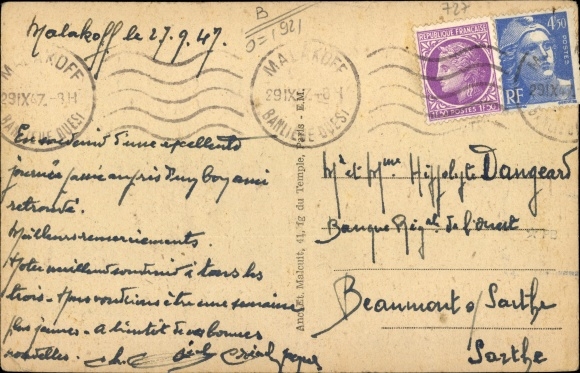 Malakoff le 27.9.47.
En souvenir d'une excellente
journée passée auprès d'un bon ami
retrouvé.
Meilleurs remerciements.
Notre meilleur souvenir à tous les
trois - nous voudrions être une semaine
plus jeunes - a bientôt de vos bonnes
nouvelles.
B
0=1921
727
MALAKOFF
29 IX 47.-8H
BANLIEUE OUEST
MALAKOFF
29 IX 47.-8H
BANLIEUE OUEST
RÉPUBLIQUE FRANÇAISE
POSTES 1F50
4F50
POSTES
RF
Malcuit, 41, fg du Temple, Paris - E.M.
Mr et Mme Hippolyte Dangeard
Banque Régale de l'ouest
Beaumont s/ Sarthe
Sarthe